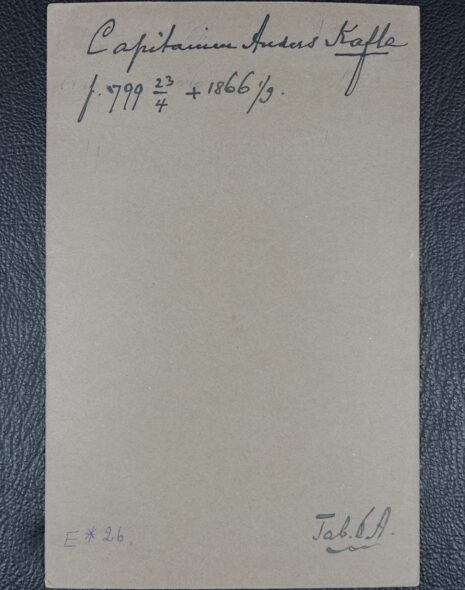 Capitainen Anders Kafle
f. 1799 23/4 + 1866 1/9.
E * 26.
Tab. 6 A.